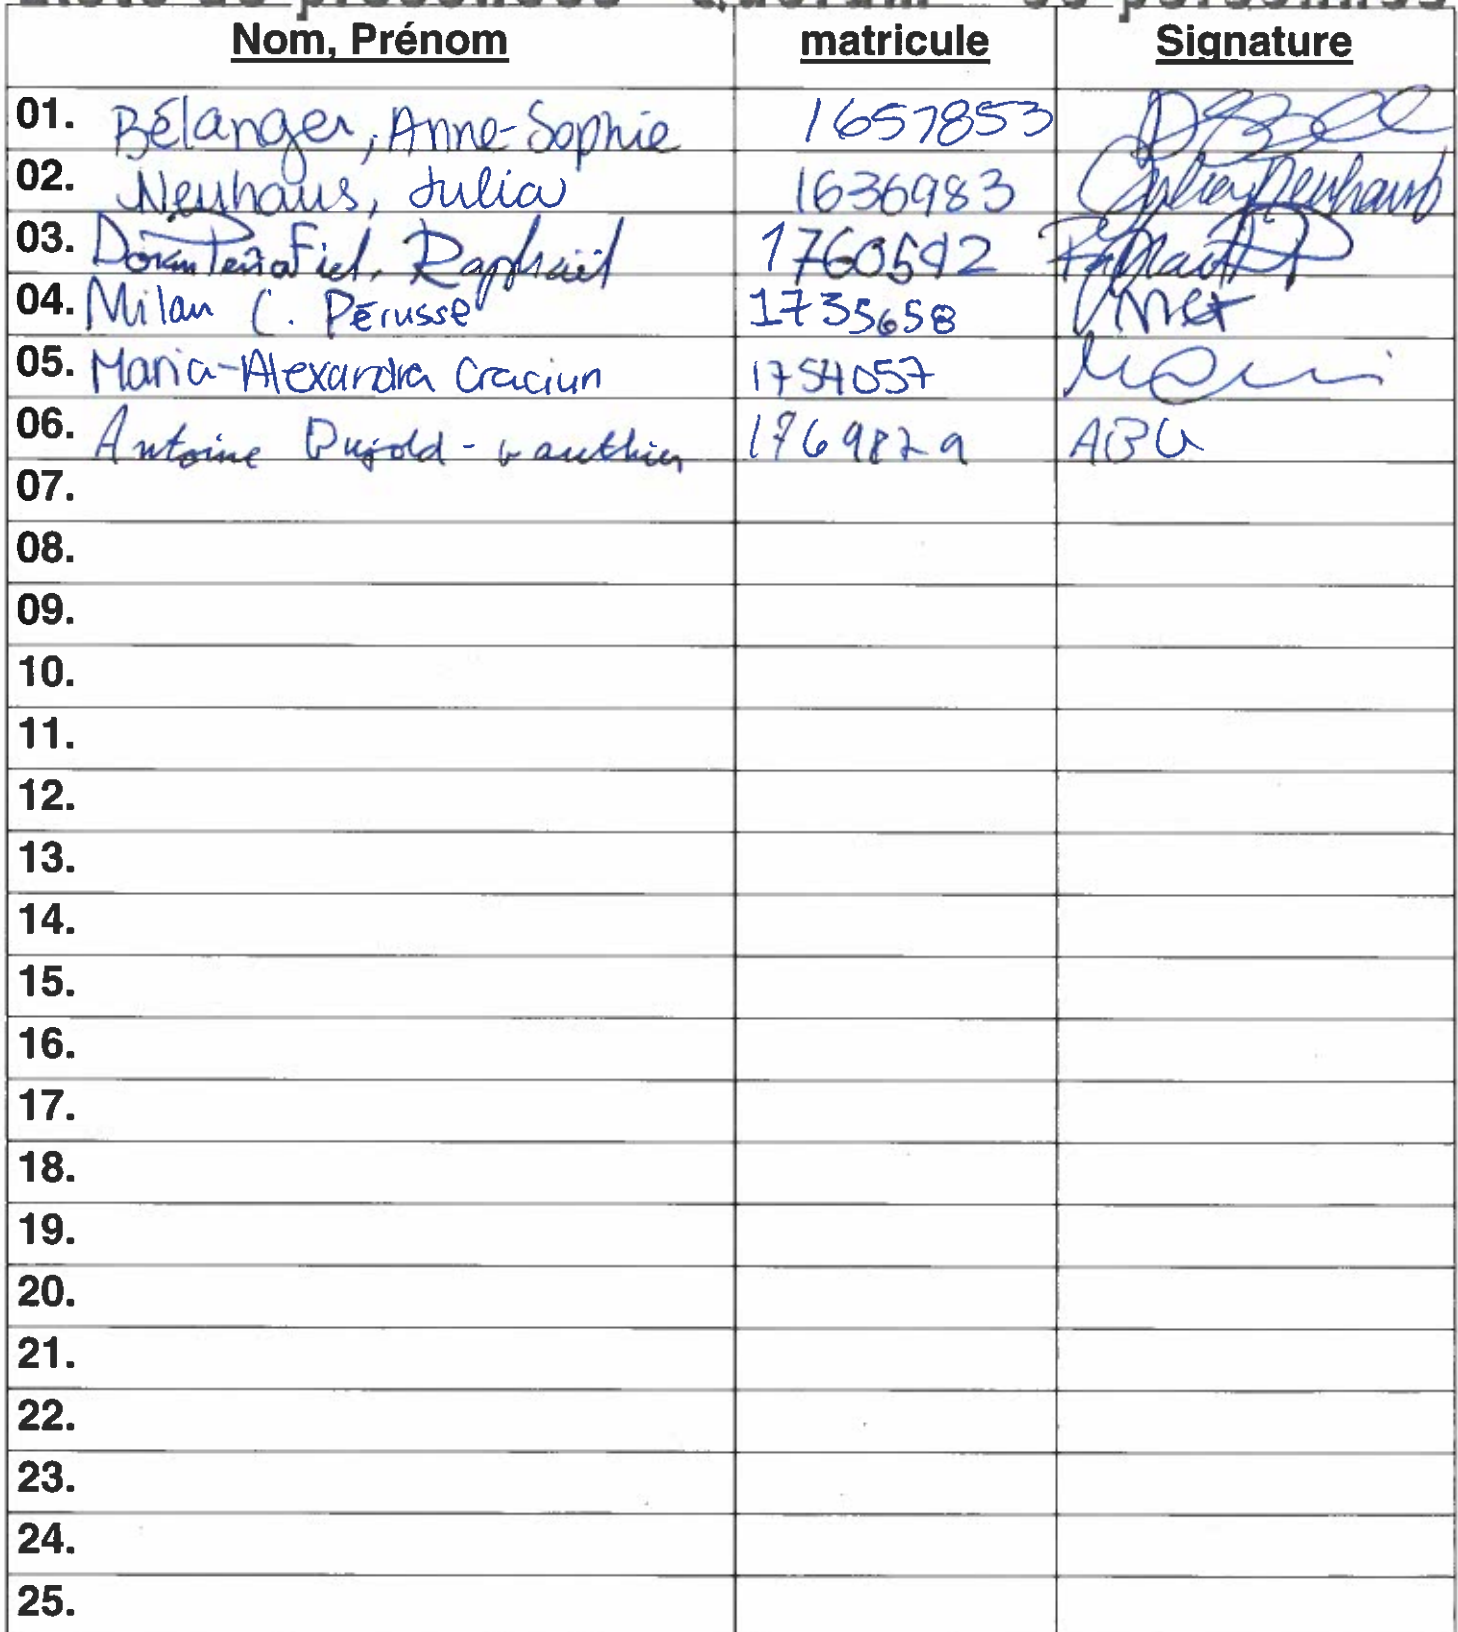 Liste de présences - Quorum - 30 personnes
Nom, Prénom matricule Signature
01. Bélanger, Anne-Sophie 1657853
02. Neuhaus, Julia 1636983 Julia Neuhaus
03. Raphaël 1760592
04. Milan C. Pérusse 1735658
05. Maria-Alexandra Craciun 1754057
06. Antoine Bujold-Gauthier 1769829 ABG
07.
08.
09.
10.
11.
12.
13.
14.
15.
16.
17.
18.
19.
20.
21.
22.
23.
24.
25.